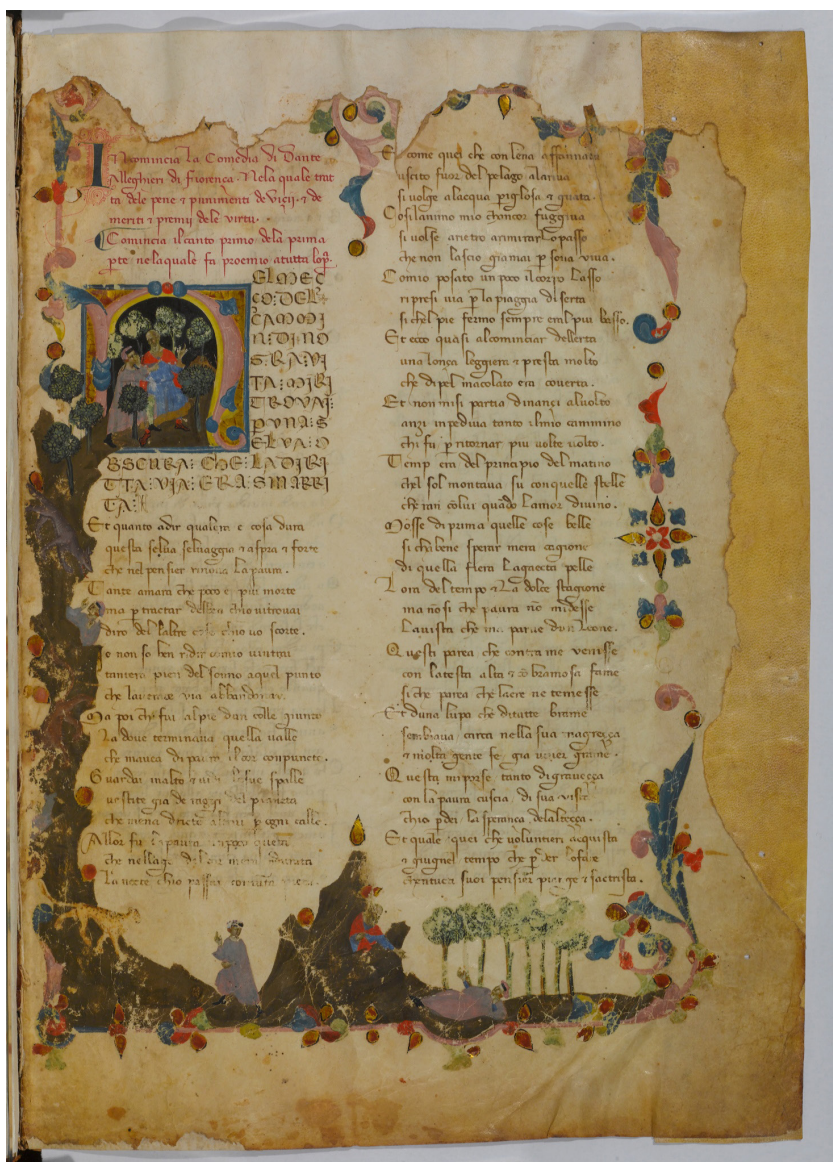 Incomincia la Comedia di Dante
Alleghieri di Fiorenca. Nela quale trat
ta dele pene e punimenti de vicij. e de
meriti e premij dele virtu.
Comincia il canto primo dela prima
pte nelaquale fa proemio atutta lop.
NELMEÇ
ÇO:DEL:
CAMMI
N:DI:NO
S:RA:VI
TA:MIRI
TROVAI:
PVNA:S
ELVA:O
BSCURA: CHE: LADIRI
TTA:VIA:ERA:SMARRI
TA:
Et quanto adir qualera e cosa dura
questa selva selvaggia e aspra e forte
che nel pensier rinova la paura.
Tante amara che poco e piu morte
ma p tractar del ben chio vitrovai
diro del laltre cose chio vo scorte.
Io non so ben ridir comio vintrai
tantera pien del sonno aquel punto
che la verace via abbandonai.
Ma poi chi fui alpie dun colle giunto
La dove terminava quella valle
che mavea di paura il cor conpuncto.
Guardai inalto e vidi le sue spalle
vestite gia de raggi del pianeta
che mena dricto altrui p ogni calle.
Allor fu la paura un poco queta
che nellago del cor mera durata
La nocte chio passai con tanta pieta.
E come quei che con lena affannata
uscito fuor del pelago alariva
si volge alacqua pigliosa e guata.
Cosi lanimo mio chancor fuggiva
si volse aretro arimirar lopasso
che non lascio giamai p sona viva.
Comio posato un poco il corpo lasso
ripresi via p la piaggia diserta
sichel pie fermo sempre eral piu basso.
Et ecco quasi alcominciar dellerta
una lonça leggiera e presta molto
che di pel macolato era coverta.
Et non misi partia dinançi alvolto
anzi inpediva tanto ilmio cammino
chi fu p ritornar piu volte volto.
Temp era del principio del matino
el sol montava su con quelle stelle
cheran co lui quado lamor divino.
Mosse di prima quelle cose belle
si cha bene sperar mera cagione
di quella fiera Lagaecta pelle
Lora del tempo e La dolce stagione
ma no si che paura no midesse
La vista che mi parve dun Leone.
Questi parea che contra me venisse
con latesta alta e co bramosa fame
si che parea che laere ne temesse
Et duna lupa che ditutte brame
sembiava carca nella sua magreçça
e molta gente fe gia viver grame.
Questa miporse tanto di graveçça
con la paura cuscia di sua vista
chio pdei la sperança delalteçça.
Et quale quei che voluntieri acquista
e giugnel tempo che pder lo face
chentucti suoi pensier piange e sactrista.